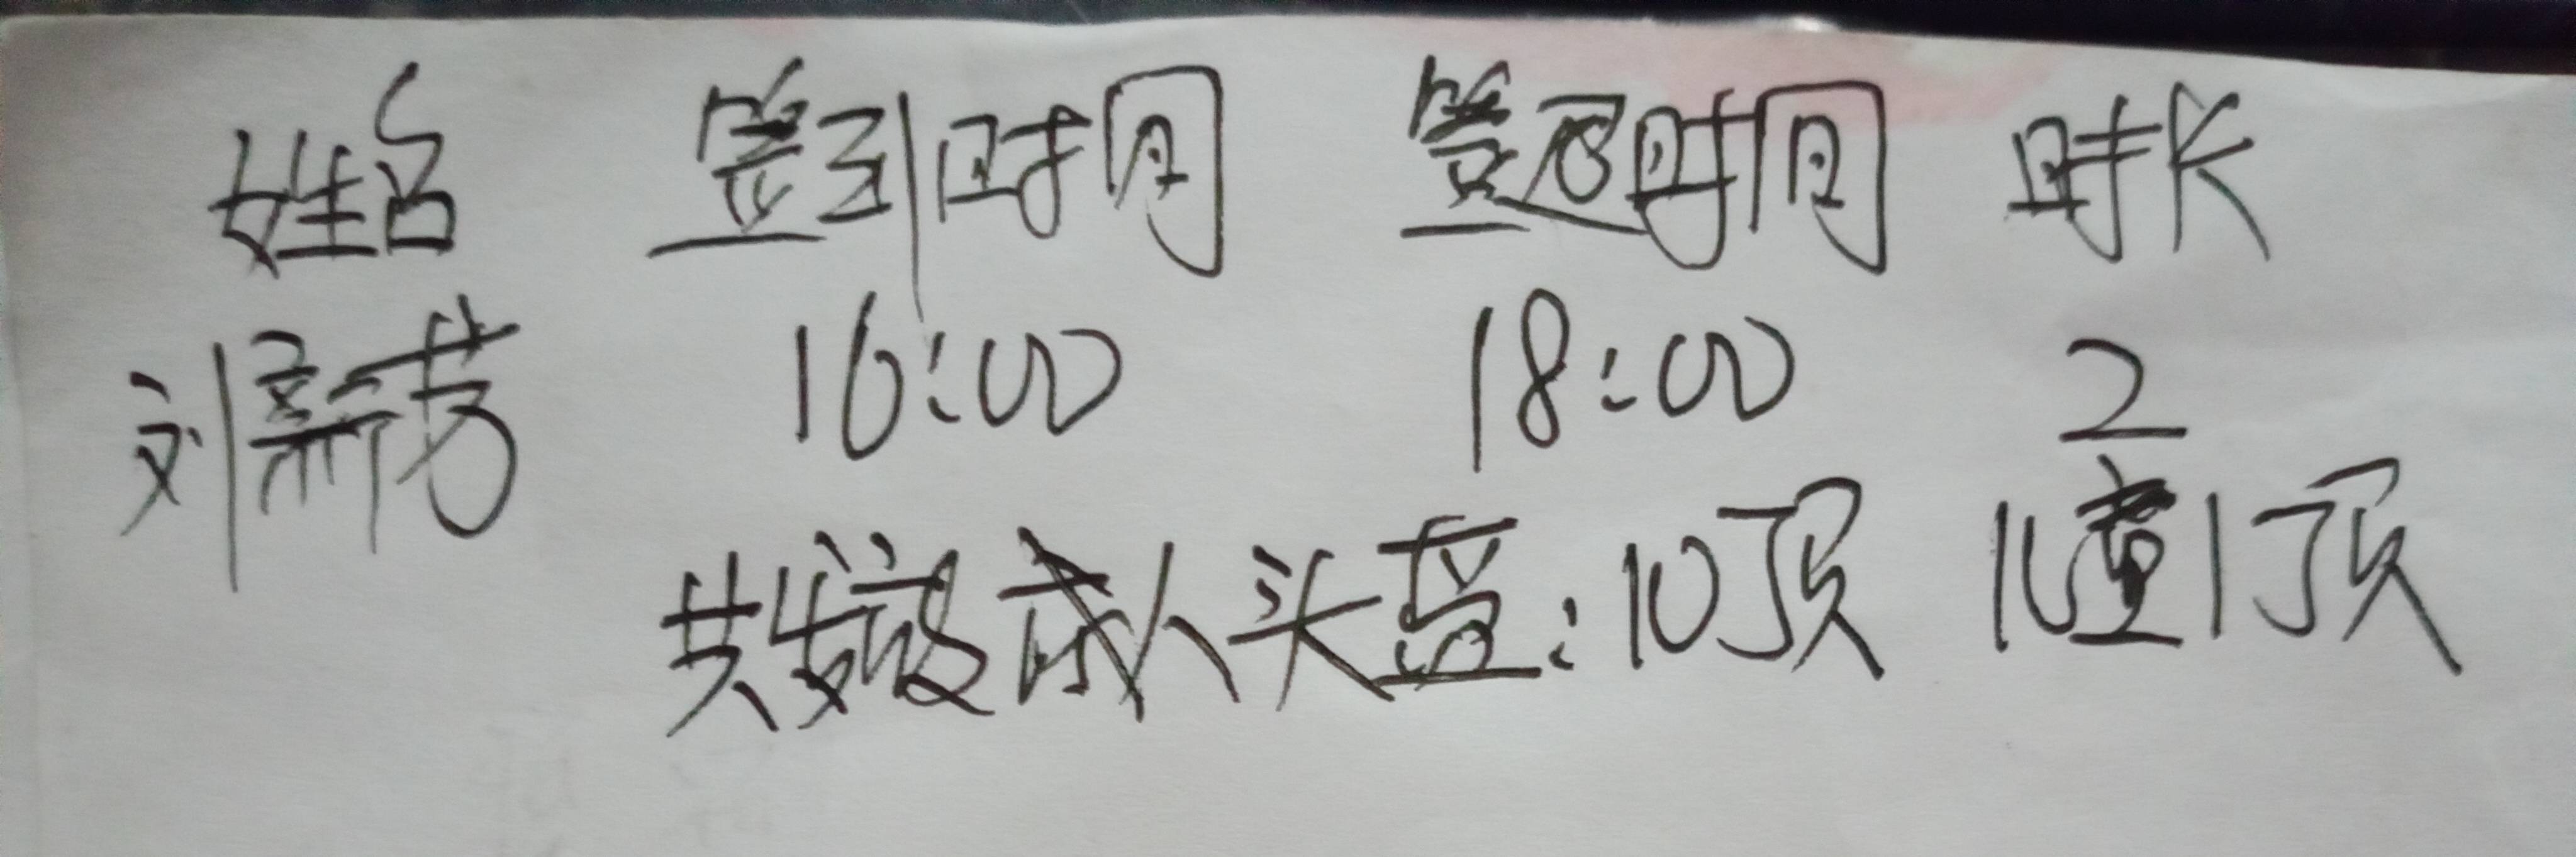 姓名 签到时间 签退时间 时长
刘齐芳 16:00 18:00 2
共发放成人头盔:10顶 儿童1顶